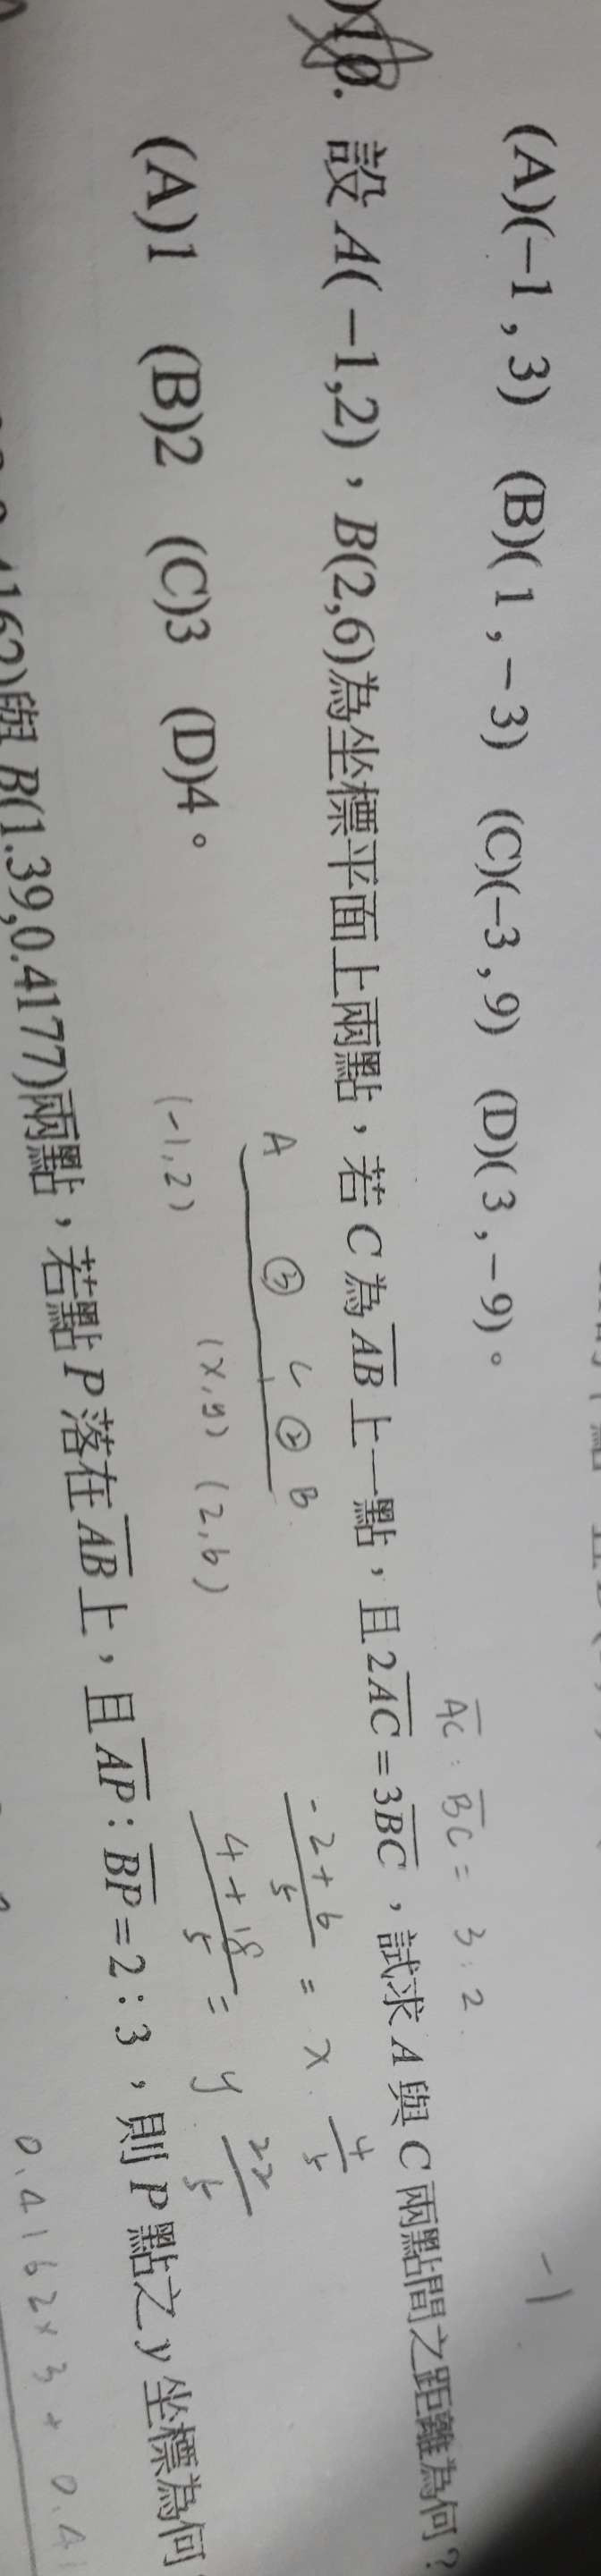 (A)(−1 , 3) (B)( 1 , −3) (C)(−3 , 9) (D)( 3 , −9)。
-1
AC : BC = 3 : 2
10. 設 A( −1,2)，B(2,6)為坐標平面上兩點，若 C 為 AB 上一點，且 2AC = 3BC，試求 A 與 C 兩點間之距離為何？
A ③ C ② B
(-1,2) (x,y) (2,6)
-2+6/5 = x 4/5
4+18/5 = y 22/5
(A)1 (B)2 (C)3 (D)4。
與 B(1.39,0.4177)兩點，若點 P 落在 AB 上，且 AP : BP = 2 : 3，則 P 點之 y 坐標為何
0.4162×3 + 0.41